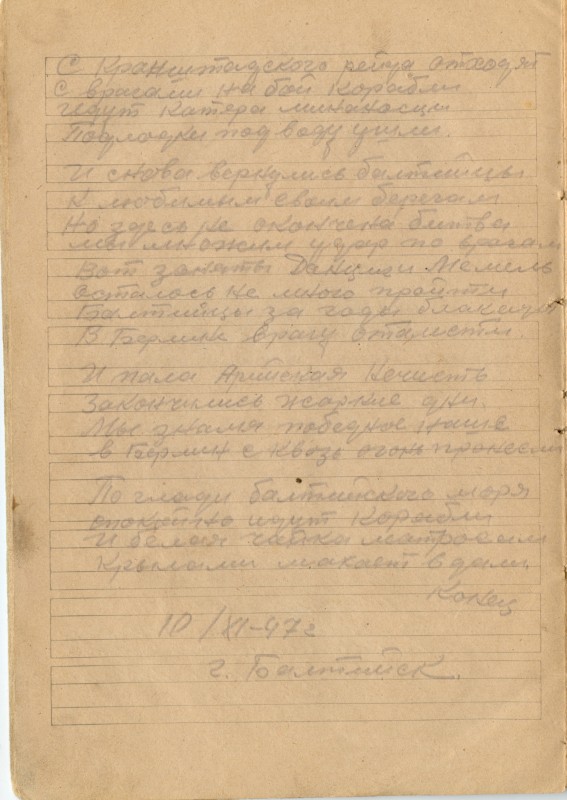 С Кранштадского рейда отходят
с врагами на бой Корабли
идут Катера миноносцы
Подлодки под воду ушли.
И снова вернулись балтийцы
К любимым своим берегам
Но здесь не окончена битва
мы множим удар по врагам
Вот заняты Данциг и Мемель
осталось не много пройти
Балтийцы за годы блокады
В Берлине врагу отомстили.
И пала Арийская Нечисть
Закончились жаркие дни.
Мы знамя победное наше
в Берлин сквозь огонь пронесли
По глади балтийского моря
спокойно идут Корабли
И белая чайка матросам
Крылами махает вдали
Конец
10/XI-47г
г. Балтийск.